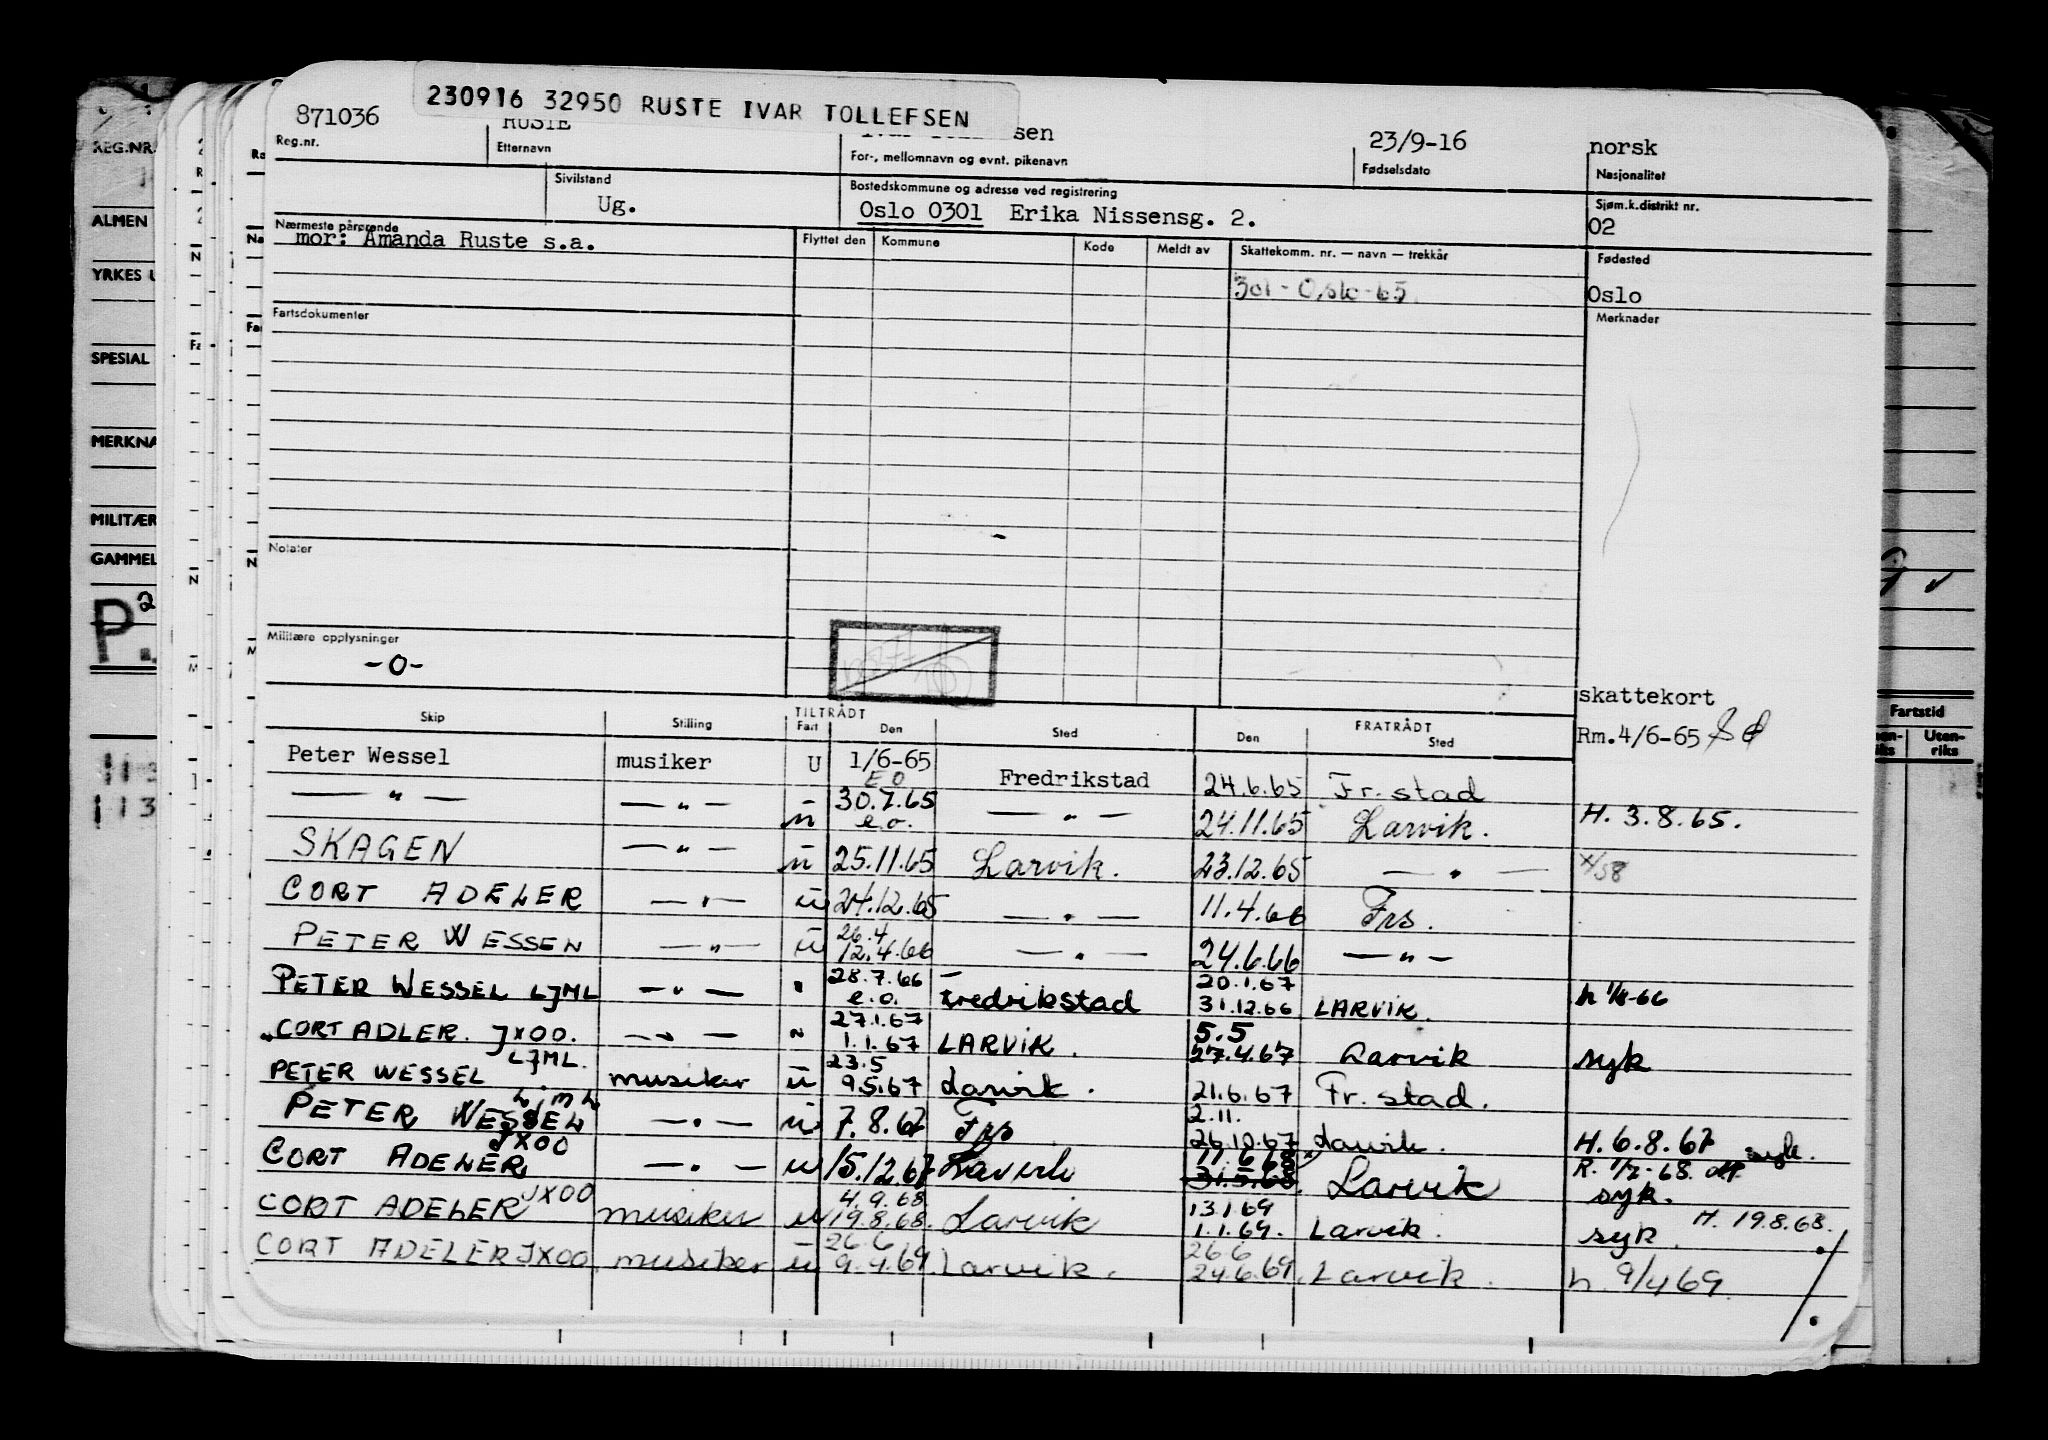 230916 32950 RUSTE IVAR TOLLEFSEN
871036 RUSTE sen 23/9-16 norsk
Reg.nr. Etternavn For-, mellomnavn og evnt. pikenavn Fødselsdato Nasjonalitet
Sivilstand Bostedskommune og adresse ved registrering Sjøm.k.distrikt nr.
Ug. Oslo 0301 Erika Nissensg. 2. 02
Nærmeste pårørende Flyttet den Kommune Kode Meldt av Skattekomm. nr. — navn — trekkår Fødested
mor: Amanda Ruste s.a.
301 - Oslo - 65 Oslo
Fartsdokumenter Merknader
Notater
Militære opplysninger
-0-
skattekort
Skip Stilling TILTRÅDT Fart Den Sted Den FRATRÅDT Sted
Rm. 4/6-65
Peter Wessel musiker U 1/6-65 Fredrikstad 24.6.65 Fr. stad
EO
— " — — " — u 30.7.65 e.o. — " — 24.11.65 Larvik. H. 3.8.65.
SKAGEN — " — u 25.11.65 Larvik. 23.12.65 — " — x/58
CORT ADELER — " — u 24.12.65 — " — 11.4.66 Frs.
PETER WESSEN — " — u 26.4 12.4.66 — " — 24.6.66 — " —
PETER WESSEL LJML — " — " 28.7.66 e.o. Fredrikstad 20.1.67 31.12.66 LARVIK. h 1/8-66
CORT ADLER. JXOO. — " — " 27.1.67 1.1.67 LARVIK. 5.5 27.4.67 Larvik syk
PETER WESSEL LJML. musiker u 23.5 9.5.67 Larvik. 21.6.67 Fr. stad.
PETER WESSEL LJML — " — u 7.8.67 Frs 2.11. 26.10.67 Larvik. H. 6.8.67 syk.
CORT ADELER JXOO — " — u 15.12.67 Larvik 17.6.68 31.5.68. Larvik R. 1/7-68. syk.
CORT ADELER JXOO musiker u 4.9.68. 19.8.68. Larvik 13.1.69 1.1.69. Larvik. syk. H. 19.8.68.
CORT ADELER JXOO musiker u 26.6 9.4.69. Larvik. 26.6 24.6.69. Larvik. h. 9/4 69.
REG.NR.
ALMEN
YRKES
SPESIAL
MERKNA
MILITÆR
GAMMEL
P. 2
Fartstid
Uten-
riks